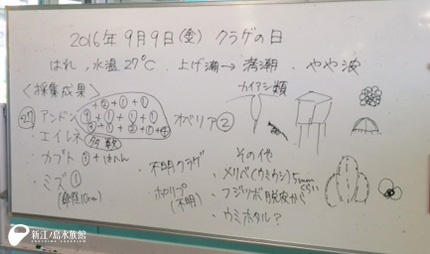 2016年 9月9日(金) クラゲの日
はれ、水温27℃、上げ潮→満潮、やや波
<採集成果>
カイアシ類
+②+①+①
㉗ アンドン
オベリア②
・エイレネ 多数
・カブト ③+はへん
・ミズ①
・不明クラゲ
ポリプ(不明)
その他
・メリベ(ウミウシ)5mmくらい
・フジツボ脱皮から
・ウミホタル?
新江ノ島水族館